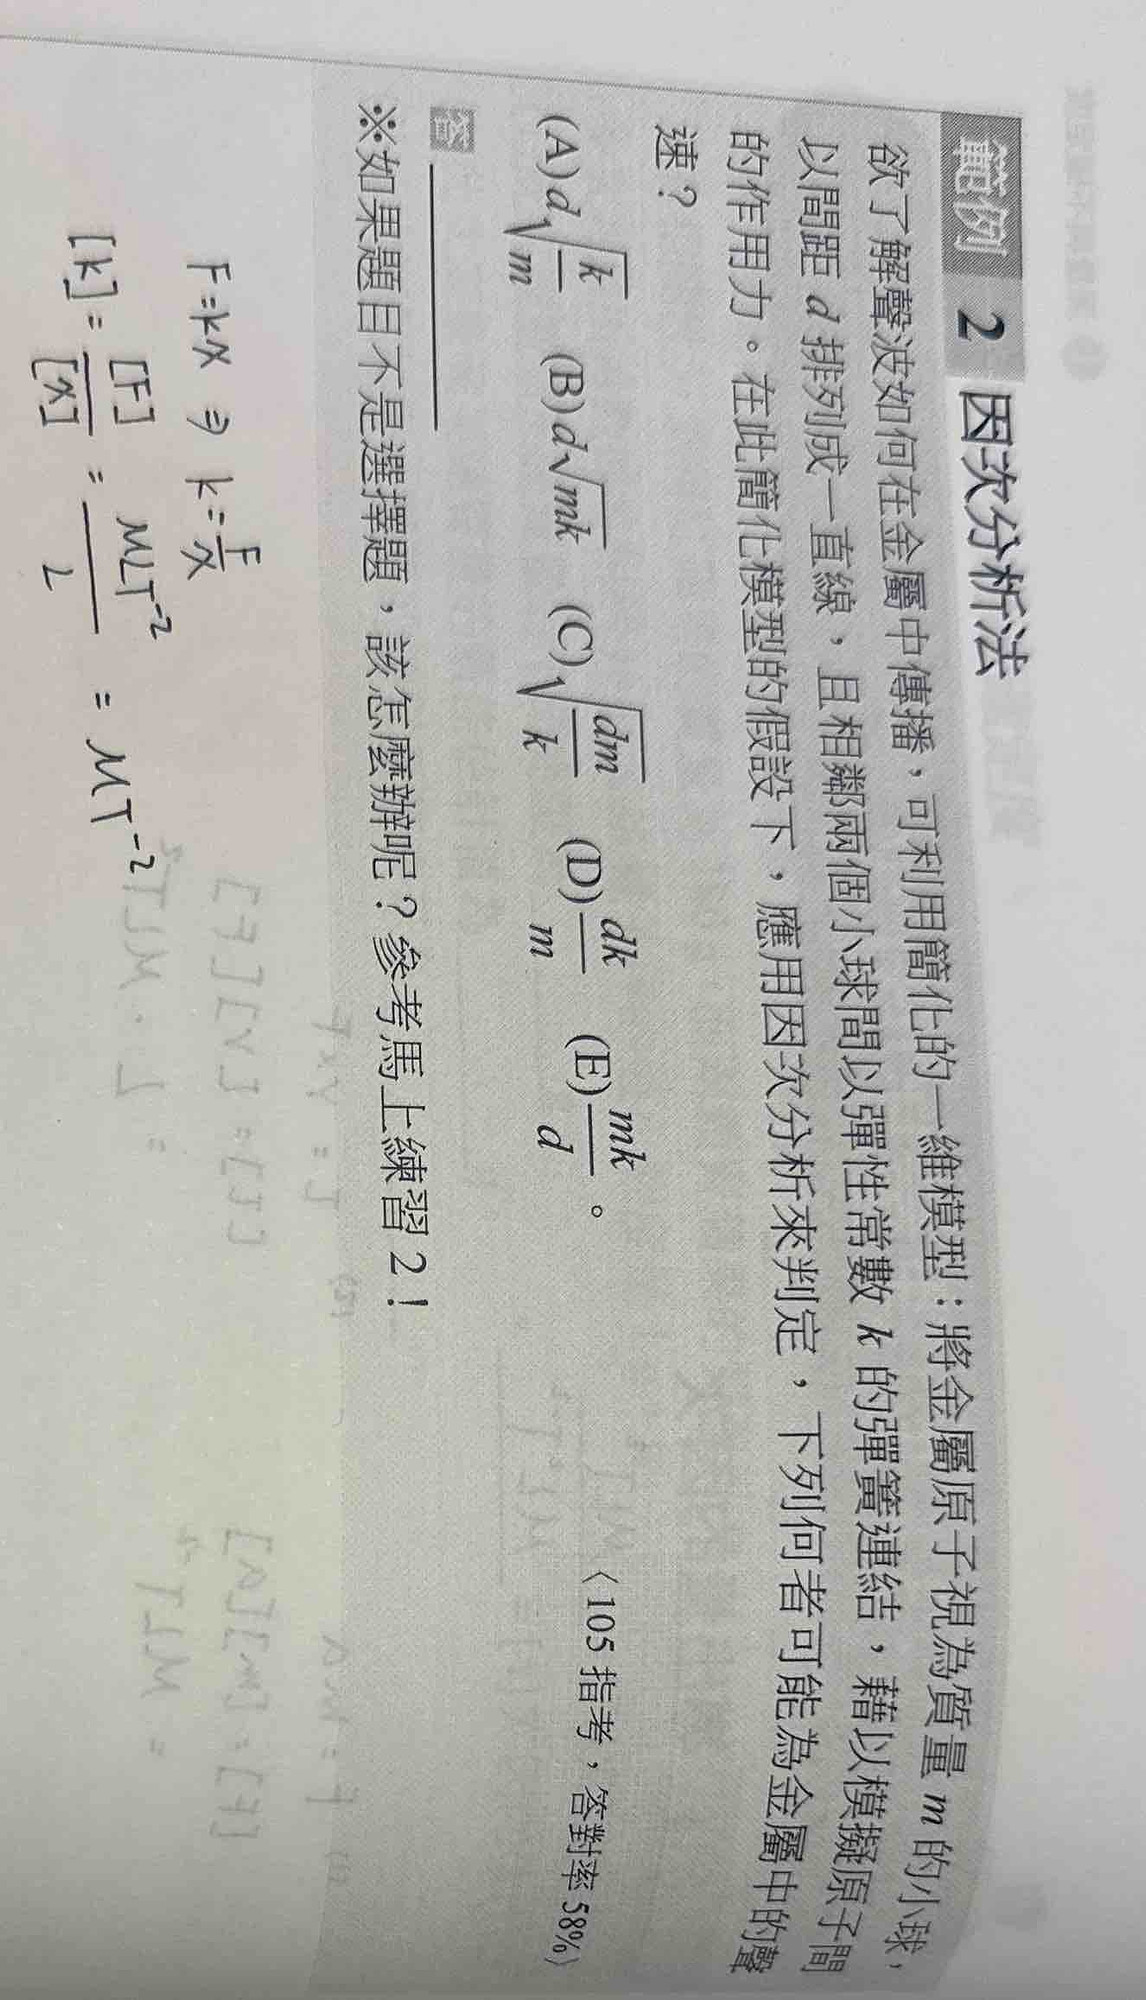 範例 2 因次分析法
欲了解聲波如何在金屬中傳播，可利用簡化的一維模型：將金屬原子視為質量 m 的小球，
以間距 d 排列成一直線，且相鄰兩個小球間以彈性常數 k 的彈簧連結，藉以模擬原子間
的作用力。在此簡化模型的假設下，應用因次分析來判定，下列何者可能為金屬中的聲
速？
(A) d√(k/m) (B) d√(mk) (C) √(dm/k) (D) dk/m (E) mk/d 。
〈105 指考，答對率 58%〉
答
※如果題目不是選擇題，該怎麼辦呢？參考馬上練習 2！
F=kx ⇒ k=F/x
[k] = [F]/[x] = MLT⁻²/L = MT⁻²